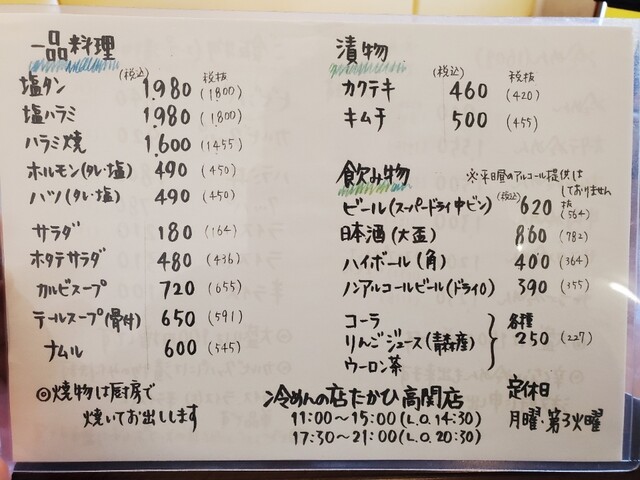 一品料理
(税込) 税抜
塩タン 1,980 (1800)
塩ハラミ 1,980 (1,800)
ハラミ焼 1,600 (1455)
ホルモン(タレ・塩) 490 (450)
ハツ(タレ・塩) 490 (450)
サラダ 180 (164)
ホタテサラダ 480 (436)
カルビスープ 720 (655)
テールスープ(骨付) 650 (591)
ナムル 600 (545)
◎焼物は厨房で
焼いてお出しします
漬物
(税込) 税抜
カクテキ 460 (420)
キムチ 500 (455)
飲み物 ※平日昼のアルコール提供は
しておりません
ビール(スーパードライ中ビン) (税込) 620 税抜 (564)
日本酒(大盃) 860 (782)
ハイボール(角) 400 (364)
ノンアルコールビール(ドライ0) 390 (355)
コーラ
りんごジュース(青森産) 各種 250 (227)
ウーロン茶
冷めんの店たかひ高関店
11:00~15:00(L.O.14:30)
17:30~21:00(L.O.20:30)
定休
月曜・第3火曜